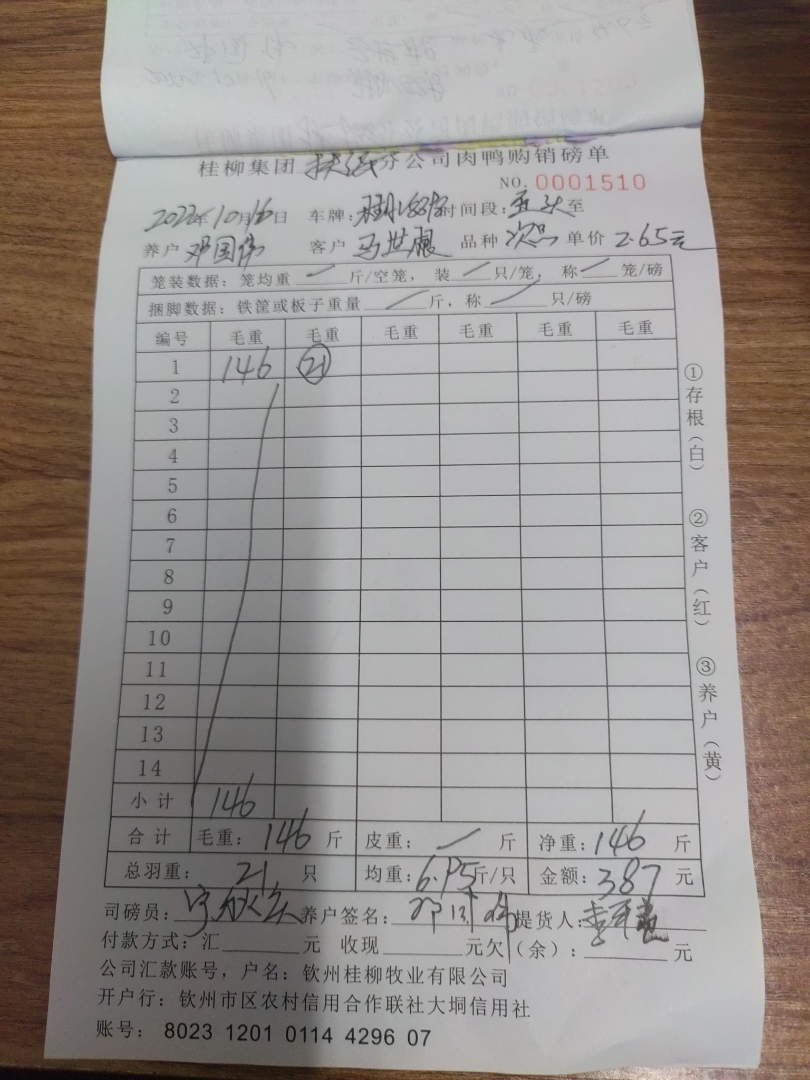 桂柳集团 分公司肉鸭购销磅单
NO. 0001510
2022年10月16日 车牌: 时间段: 至
养户 邓国伟 客户 马世服 品种 次品 单价 2.65元
笼装数据: 笼均重 斤/空笼, 装 只/笼, 称 笼/磅
捆脚数据: 铁筐或板子重量 斤, 称 只/磅
编号 毛重 毛重 毛重 毛重 毛重 毛重
1 146 21
2
3
4
5
6
7
8
9
10
11
12
13
14
小计 146
合计 毛重: 146 斤 皮重: 斤 净重: 146 斤
总羽重: 21 只 均重: 6.95 斤/只 金额: 387 元
司磅员: 养户签名: 邓国伟 提货人:
付款方式: 汇 元 收现 元欠(余): 元
公司汇款账号, 户名: 钦州桂柳牧业有限公司
开户行: 钦州市区农村信用合作联社大垌信用社
账号: 8023 1201 0114 4296 07
①存根(白) ②客户(红) ③养户(黄)